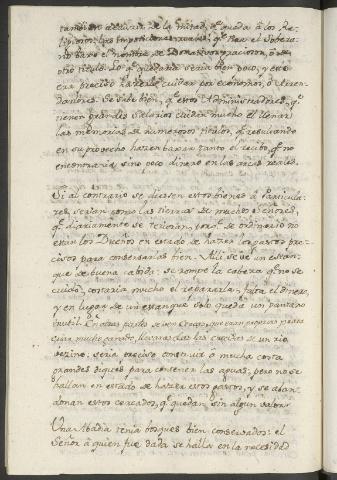 tambien se lleva de la mitad, q.e queda à los Re-
ligiosos: las imposiciones reales, q.e hace el Sobera-
no bajo el nombre de
otro titulo. Lo q.e quedaria seria bien poco, y en-
era preciso hacerlo cuidar por economos, ò Arren-
dadores. Se sabe bien, q.e estos Administradores, q.e
tienen grandes salarios cuidan mucho el llenar
las memorias de numerosos titulos, q.e resultando
en su provecho hazen baxar tanto el recibo, q.e no
encontraria, sino poco dinero en las arcas reales.
Si al contrario se diesen estos bienes à Particula-
res, serian como las tierras de muchos Señores,
q.e diariamente se deterioran, porq.e de ordinario no
estan los Dueños en estado de hazer los gastos pre-
cisos para conservarlas bien. Alli se ve un estan-
que de buena cabida: se rompe la cabeza q.e no se
cuidò, costaria mucho el repararla, falta el dinero,
y en lugar de un estanque solo queda un pantano
inutil. En otras partes se ven que eran propias para
criar mucho ganado, llevarse las de un rio
vezino; seria preciso construir à mucha costa
grandes diques para contener las aguas; pero no se
hallan en estado de hazer estos gastos, y se aban-
donan estos cercados, q.e quedan sin algun valor.
Una Abadia tenia bosques bien conservados: el
Señor à quien fue dada se halla en la necesidad